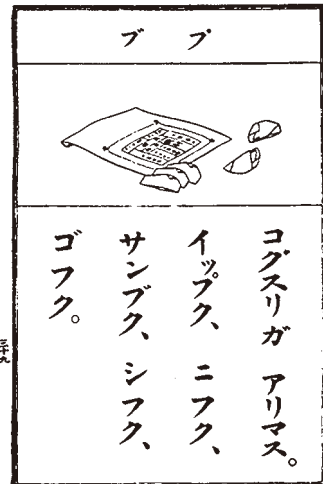 プ ブ
コグスリガ アリマス。
イップク、ニフク、
サンブク、シフク、
ゴフク。
三十九